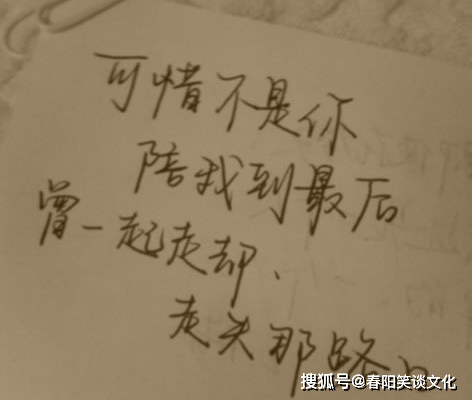 可惜不是你
陪我到最后
曾一起走却、
走失那路口
搜狐号@春阳笑谈文化